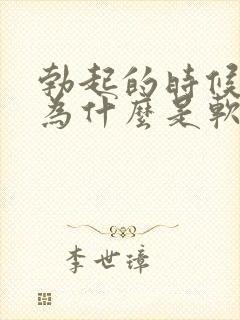 勃起的時候
為什麼是軟
李世璋